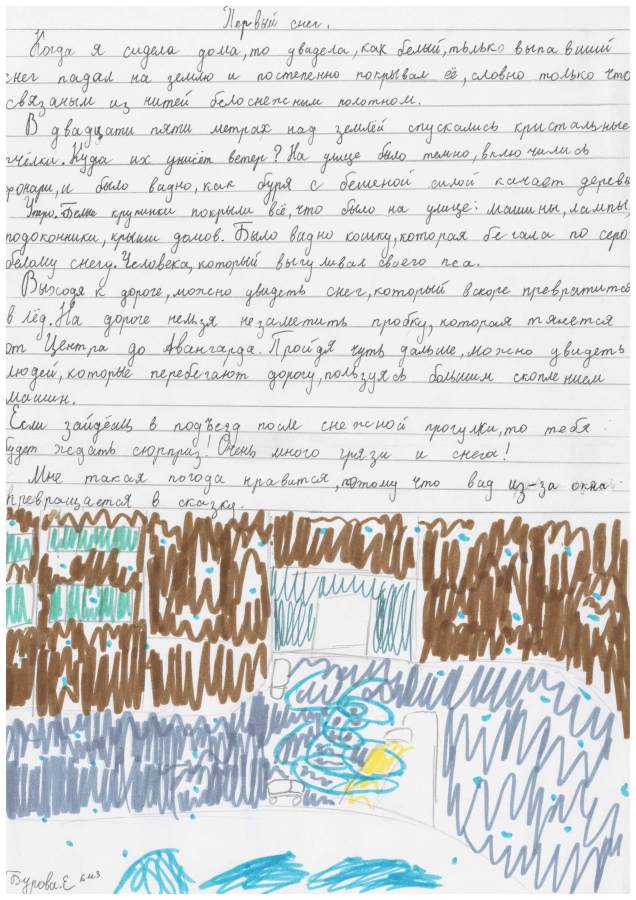 Первый снег.
Когда я сидела дома, то увидела, как белый, только выпавший
снег падал на землю и постепенно покрывал её, словно только что
связаным из нитей белоснежним полотном.
В двадцати пяти метрах над землёй спускались кристальные
пчёлки. Куда их унисёт ветер? На улице было темно, включились
фонари, и было вадно, как буря с бешеной силой качает деревья
Утро. Белые крупинки покрыли всё, что было на улице: машины, лампы,
подоконники, крыши домов. Было вадно кошку, которая бегала по серо-
белому снегу. Человека, который выгуливал своего пса.
Выходя к дороге, можно увидеть снег, который вскоре превратится
в лёд. На дороге нельзя незаметить пробку, которая тянется
от Центра до Авангарда. Пройдя чуть дальше, можно увидеть
людей, которые перебегают дорогу, пользуясь большим скоплением
машин.
Если зайдёшь в подъезд после снежной прогулки, то тебя
будет ждать сюрприз! Очень много грязи и снега!
Мне такая погода нравится, потому что вад из-за окна
превращается в сказку.
Бурова. Е